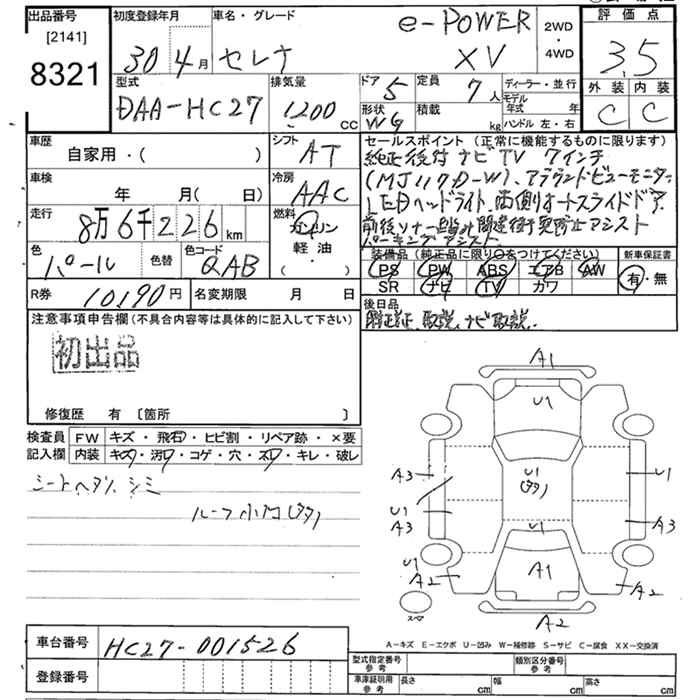 出品番号 初度登録年月 車名・グレード 評価点
[2141]
8321
30 4月 セレナ e-POWER XV 2WD・4WD 3.5
型式 排気量 ドア 定員 ディーラー・並行 外装 内装
DAA-HC27 1200 CC 5 7人 モデル年式 年 C C
形状 積載 ハンドル 左・右
WG kg
車歴 シフト セールスポイント (正常に機能するものに限ります)
自家用・( ) AT 純正後付ナビTV 7インチ
(MJ117D-W)、アラウンドビューモニター
車検 冷房 LEDヘッドライト、両側オートスライドドア、
年 月(日) AAC 前後ソナー踏み間違衝突防止アシスト
パーキングアシスト
走行 燃料
8万6千226km ガソリン 軽・油 ( )
色 色替 色コード 装備品 (純正品に限り○をつけてください) 新車保証書
パール QAB PS PW ABS エアB AW 有・無
SR ナビ TV カワ
R券 10,190円 名変期限 月 日 後日品
注意事項申告欄(不具合内容等は具体的に記入して下さい) 保証書、取説、ナビ取説.
初出品
修復歴 有 [箇所 ]
検査員 FW キズ・飛石・ヒビ割・リペア跡・×要
記入欄 内装 キズ・汚レ・コゲ・穴・スレ・キレ・破レ
シートヘタリ、シミ
ルーフ
A1
U1
A3 U1 U1
U1
A3 U1 A3
U1
A2 A1 A2
スペア
A2
A-キズ E-エクボ U-凹み W-補修跡 S-サビ C-腐食 XX-交換済
車台番号 HC27-001526
登録番号
型式指定番号 参考 類別区分番号 参考
車庫証明用 参考 長さ cm 幅 cm 高さ cm